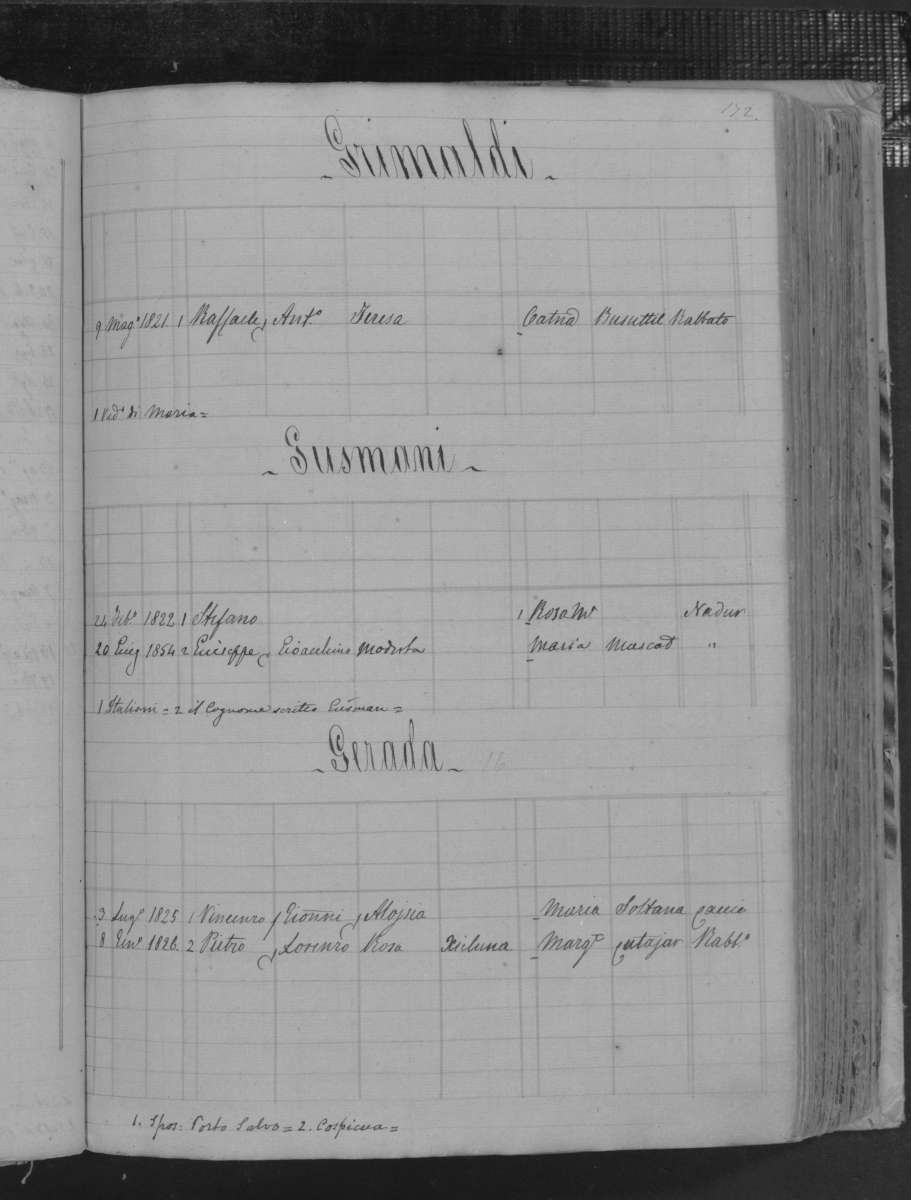 172.
Grimaldi
9 Mag.º 1821 1 Raffaele Ant.º Teresa Catnã Busuttil Rabbato
1 Ved.º di Maria =
Gusmani
24 Feb.º 1822 1 Stefano 1 Rosa M.ª Nadur
20 Giug 1854 2 Giuseppe Gioachino Modesta Maria Muscat "
1 Italiani = 2 il Cognome scritto Gusman =
Gerada 16
3 Lug.º 1825 1 Vincenzo Gionni Alojsia Maria Soltana Caccia
8 Gen.º 1826. 2 Pietro Lorenzo Rosa Xiluna Marg.ª Cutajar Rabb.º
1. Spos: Porto Salvo = 2. Cospicua =